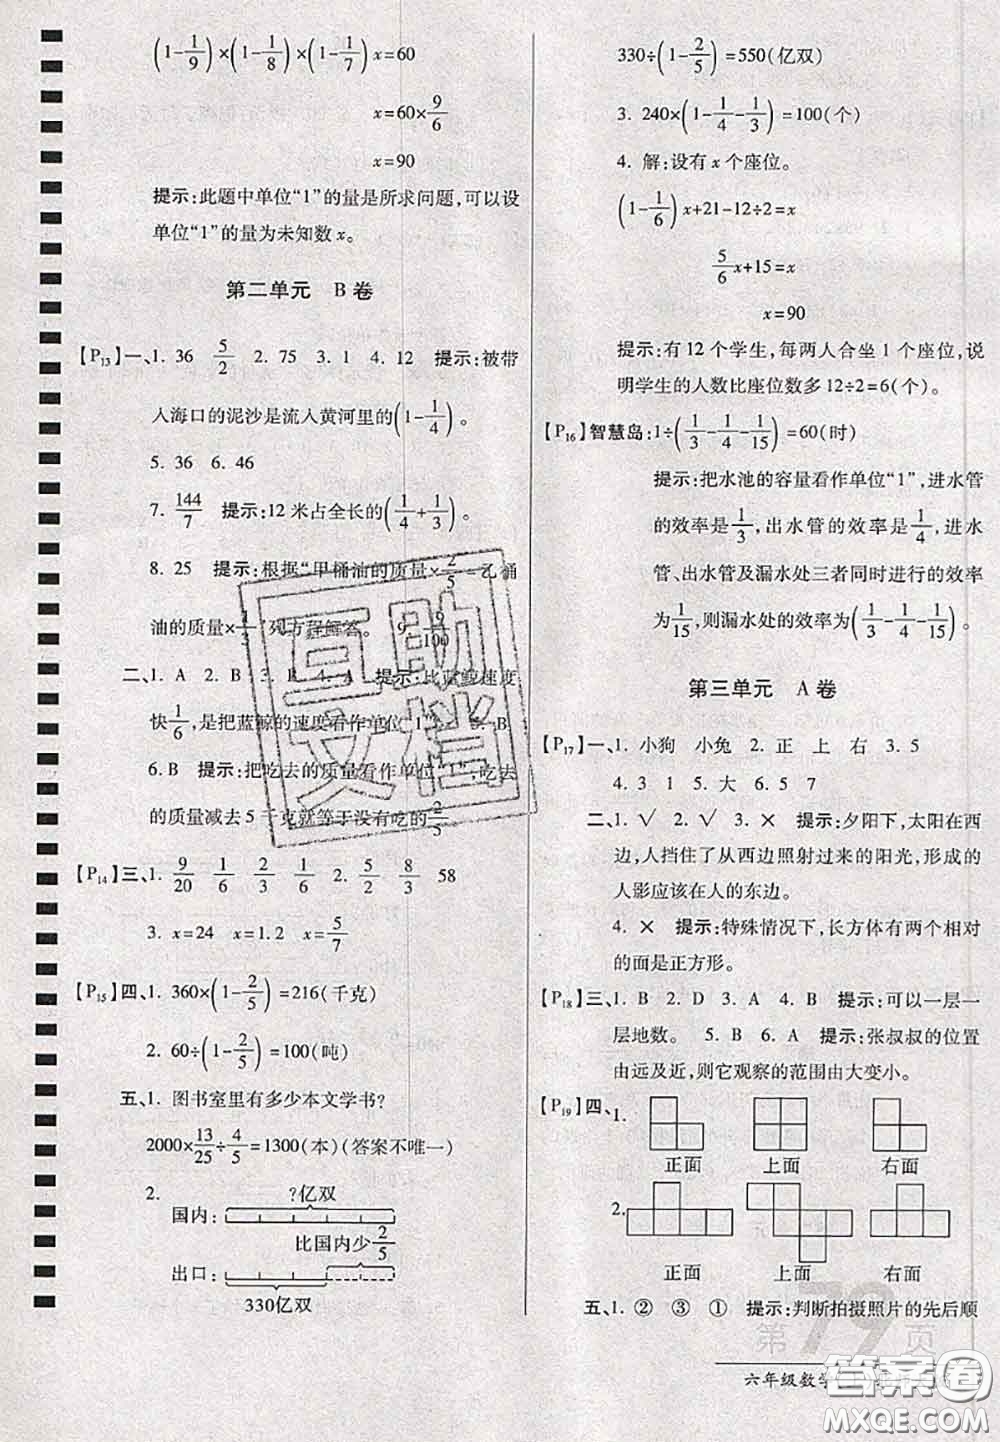 (1-1/9)×(1-1/8)×(1-1/7)x=60
x=60×9/6
x=90
提示:此题中单位“1”的量是所求问题,可以设
单位“1”的量为未知数x。
第二单元 B卷
【P13】一、1. 36 5/2 2. 75 3. 1 4. 12 提示:被带
入海口的泥沙是流入黄河里的(1-1/4)。
5. 36 6. 46
7. 144/7 提示:12米占全长的(1/4+1/3)。
8. 25 提示:根据“甲桶油的质量×2/5=乙桶
油的质量×1/3”列方程解答。 9 9/100
二、1. A 2. B 3. B 4. A 提示:比蓝鲸速度
快1/6,是把蓝鲸的速度看作单位“1”。 5. B
6. B 提示:把吃去的质量看作单位“1”,吃去
的质量减去5千克就等于没有吃的2/5
【P14】三、1. 9/20 1/6 1/3 2. 5/2 8/3 58
3. x=24 x=1.2 x=5/7
【P15】四、1. 360×(1-2/5)=216(千克)
2. 60÷(1-2/5)=100(吨)
五、1. 图书室里有多少本文学书?
2000×13/25÷4/5=1300(本)(答案不唯一)
2.
?亿双
国内:
比国内少2/5
出口:
330亿双
330÷(1-2/5)=550(亿双)
3. 240×(1-1/4-1/3)=100(个)
4. 解:设有x个座位。
(1-1/6)x+21-12÷2=x
5/6x+15=x
x=90
提示:有12个学生,每两人合坐1个座位,说
明学生的人数比座位数多12÷2=6(个)。
【P16】智慧岛:1÷(1/3-1/4-1/15)=60(时)
提示:把水池的容量看作单位“1”,进水管
的效率是1/3,出水管的效率是1/4,进水
管、出水管及漏水处三者同时进行的效率
为1/15,则漏水处的效率为(1/3-1/4-1/15)。
第三单元 A卷
【P17】一、1. 小狗 小兔 2. 正 上 右 3. 5
4. 3 1 5. 大 6. 5 7
二、1. √ 2. √ 3. × 提示:夕阳下,太阳在西
边,人挡住了从西边照射过来的阳光,形成的
人影应该在人的东边。
4. × 提示:特殊情况下,长方体有两个相对
的面是正方形。
【P18】三、1. B 2. D 3. A 4. B 提示:可以一层一
层地数。 5. B 6. A 提示:张叔叔的位置
由远及近,则它观察的范围由大变小。
【P19】四、1.
正面 上面 右面
2.
正面 上面 右面
五、1. ② ③ ① 提示:判断拍摄照片的先后顺
第79页
六年级数学
互助文档
答案圈
MXQE.COM